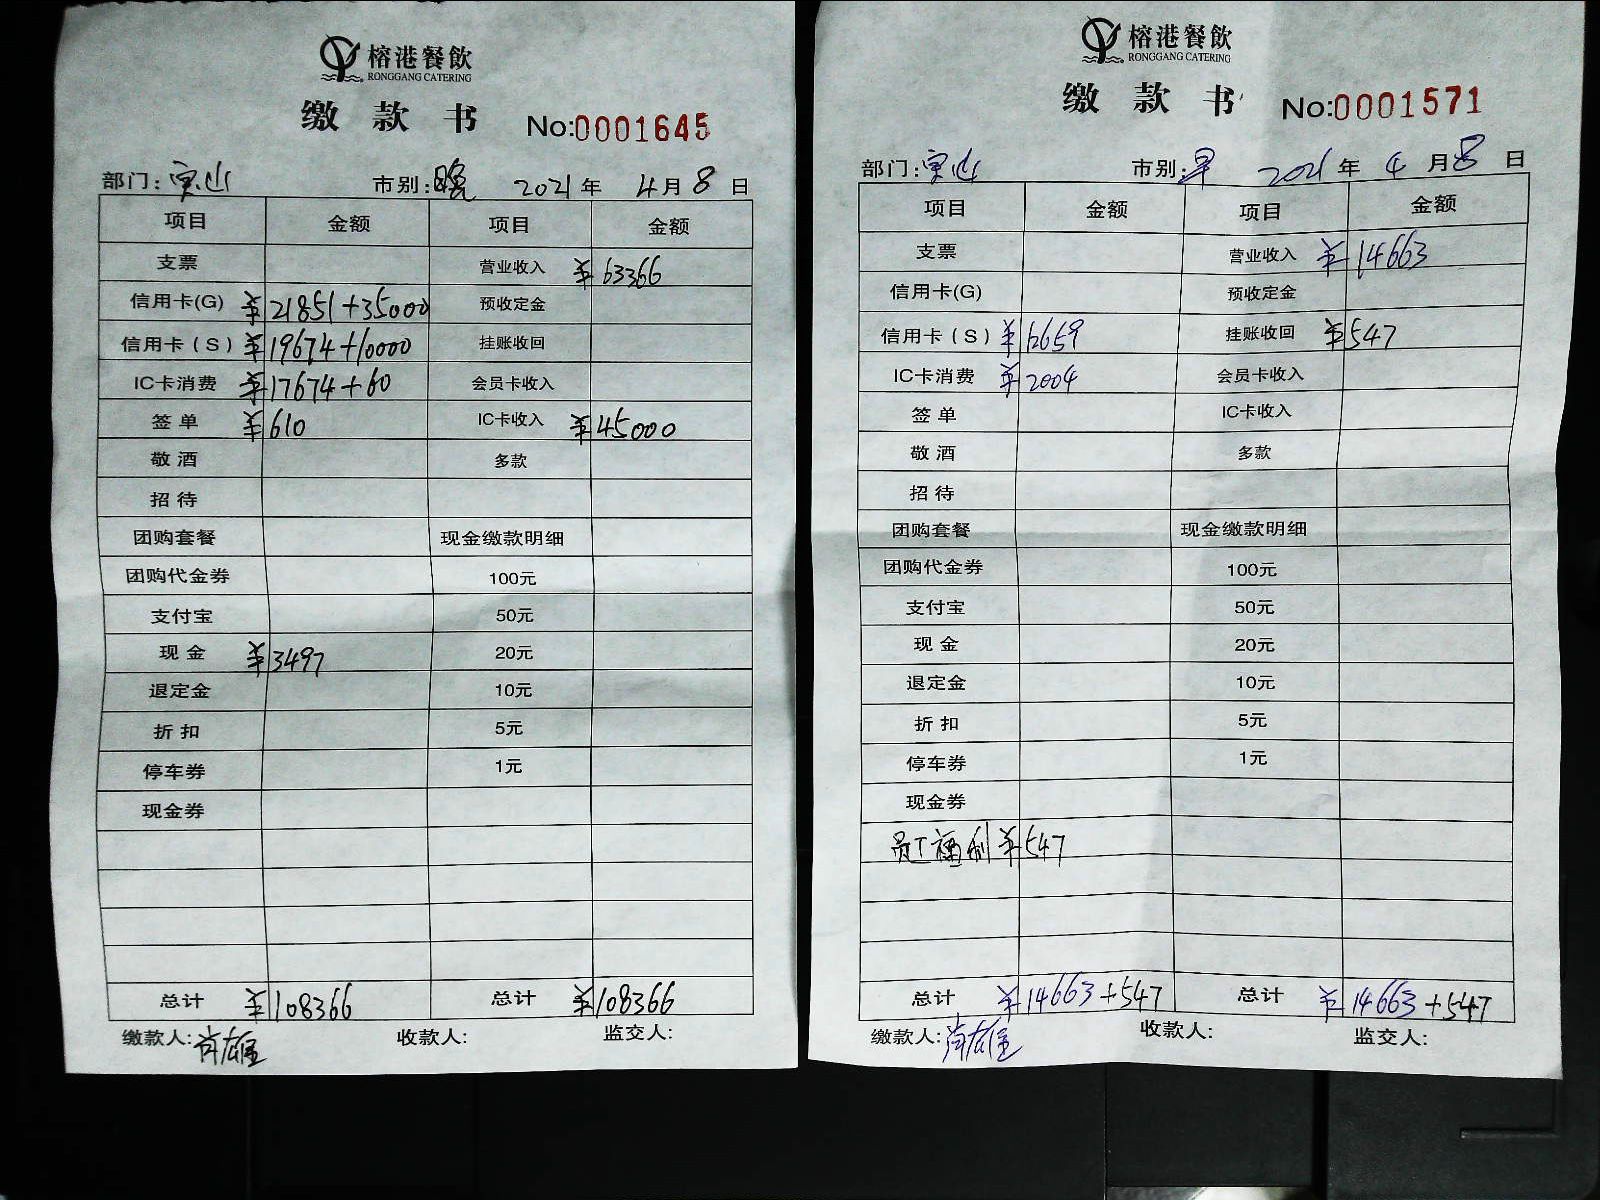 榕港餐飲
RONGGANG CATERING
缴 款 书 No:0001645
部门: 宝山 市别: 晚 2021 年 4 月 8 日
项目 金额 项目 金额
支票 营业收入 ¥63366
信用卡(G) ¥21851+35000 预收定金
信用卡(S) ¥19674+10000 挂账收回
IC卡消费 ¥17674+60 会员卡收入
签 单 ¥610 IC卡收入 ¥45000
敬 酒 多款
招 待
团购套餐 现金缴款明细
团购代金券 100元
支付宝 50元
现 金 ¥3497 20元
退定金 10元
折 扣 5元
停车券 1元
现金券
总计 ¥108366 总计 ¥108366
缴款人: 收款人: 监交人:
榕港餐飲
RONGGANG CATERING
缴 款 书 No:0001571
部门: 宝山 市别: 早 2021 年 4 月 8 日
项目 金额 项目 金额
支票 营业收入 ¥14663
信用卡(G) 预收定金
信用卡(S) ¥12659 挂账收回 ¥547
IC卡消费 ¥2004 会员卡收入
签 单 IC卡收入
敬 酒 多款
招 待
团购套餐 现金缴款明细
团购代金券 100元
支付宝 50元
现 金 20元
退定金 10元
折 扣 5元
停车券 1元
现金券
员工福利 ¥547
总计 ¥14663+547 总计 ¥14663+547
缴款人: 收款人: 监交人: